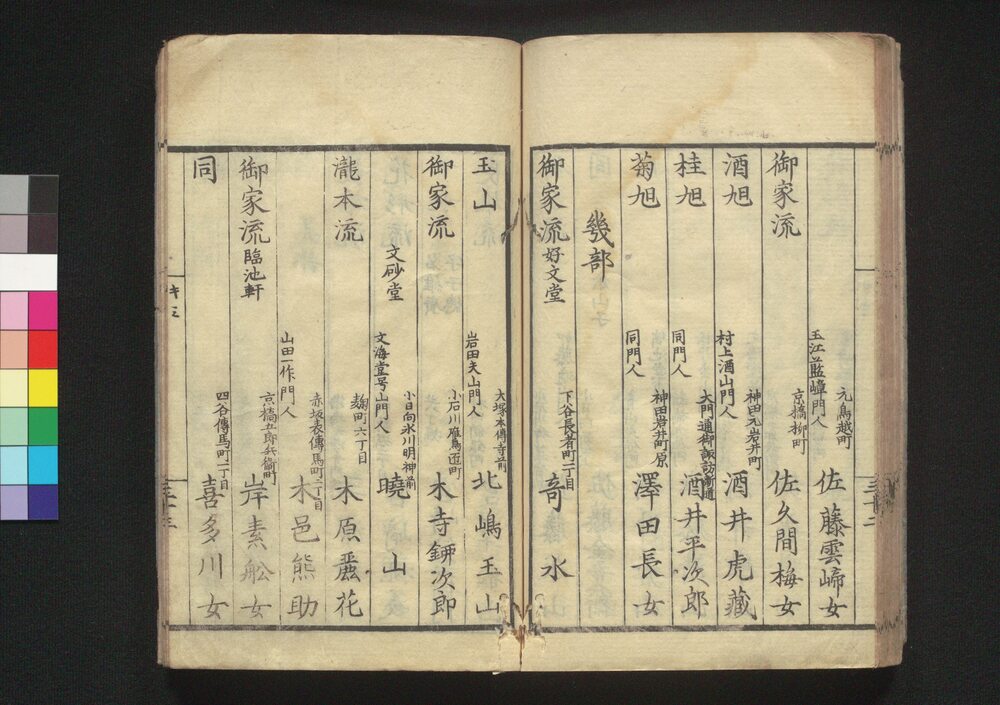 元鳥越町
玉江藍峰門人
佐藤雲崎女
御家流
京橋柳町
佐久間梅女
酒旭
神田元岩井町
村上酒山門人
酒井虎藏
桂旭
大門通御諏訪新道
同門人
酒井平次郎
菊旭
神田岩井町原
同門人
澤田長女
幾部
御家流 好文堂
下谷長者町二丁目
奇水
玉山
大塚本傳寺前
岩田夫山門人
北嶋玉山
御家流
小石川雁鳥匝町
木寺鉚次郎
文砂堂
小日向氷川明神前
文海堂号山門人
曉山
瀧本流
麹町六丁目
木原麗花
赤坂表傳馬町二丁目
山田一作門人
木邑熊助
御家流 臨池軒
京橋五郎兵衛町
岸素舩女
同
四谷傳馬町一丁目
喜多川女
キ三
三十二
三十三